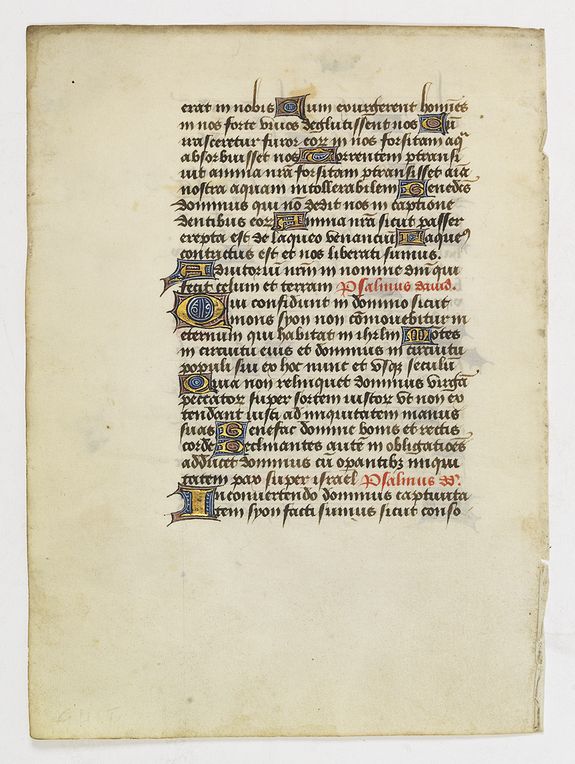 erat in nobis Cum exurgerent homīes
in nos forte vivos deglutissent nos Cū
irasceretur furor eorꝝ in nos forsitam aq̄
absorbuisset nos Torrentem ptransi
vit anima nr̄a forsitam ptransisset aīa
nostra aquam intollerabilem Benedcs
dominus qui nō dedit nos in captione
dentibus eorꝝ Anima nr̄a sicut passer
erepta est de laqueo venanciū Laqueꝰ
contritus est et nos liberati sumus.
Adiutoriū nrm̄ in nomine dn̄i qui
fecit celum et terram Psalmus david.
Qui confidunt in domino sicut
mons syon non cōmovebitur in
eternum qui habitat in ihrlm̄ Mōtes
in circuitu eius et dominus in circuitu
populi sui ex hoc nunc et vsqꝫ seculū
Quia non relinquet dominus virgā
peccatorꝝ super sortem iustorꝝ vt non ex
tendant iusti ad iniquitatem manus
suas Benefac domine bonis et rectis
corde Declinantes autē in obligatiōes
adducet dominus cū opantibꝫ iniqui
tatem pax super israel Psalmus dd.
In convertendo dominus captivita
tem syon facti sumus sicut conso